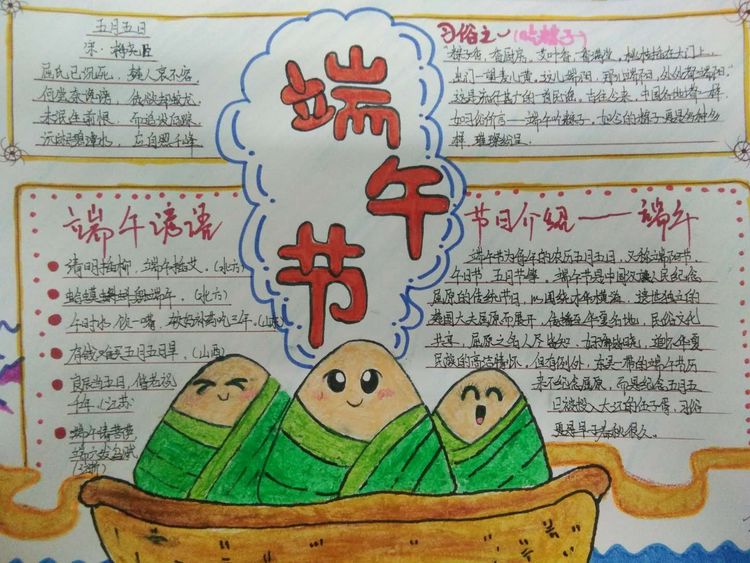 五月五日
宋·梅尧臣
屈氏已沉死，楚人哀不容。
何尝奈谗谤，徒欲却蛟龙。
未泯生前恨，而追没后踪。
沅湘碧潭水，应自照千峰。
端午节
习俗之一（吃粽子）
“粽子香，香厨房。艾叶香，香满堂。桃枝插在大门上，
出门一望麦儿黄。这儿端阳，那儿端阳，处处都端阳。”
这是流行甚广的一首民谣。古往今来，中国各地都一样
端午吃粽子，如今的粽子更是多种多
样，璀璨纷呈。
端午谚语
清明插柳，端午插艾。
午时水饮一嘴，较好补药吃三年。（山东）
有钱难买五月五日旱。（山西）
良辰当五日，偕老祝
千年。（江苏）
节日介绍——端午
端午节为每年的农历五月五日，又称端阳节、
午日节、五月节等。端午节是中国汉族人民纪念
屈原的传统节日，以围绕才华横溢、遗世独立的
楚国大夫屈原而展开，传播至华夏各地，民俗文化
共享，屈原之名人尽皆知，追怀华夏
民族的高洁情怀。但有例外，东吴一带的端午节历
来不纪念屈原，而是纪念五月五
日被投入大江的伍子胥，
更是早于春秋很久。